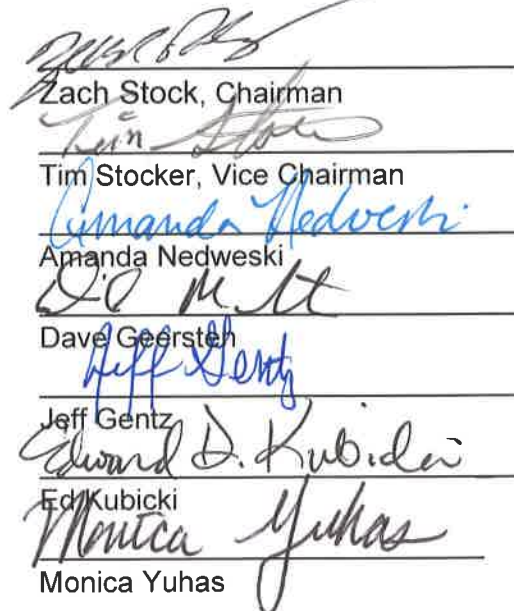 Zach Stock, Chairman
Tim
Tim Stocker, Vice Chairman
Amanda Nedweski
Amanda Nedweski
Dave Geersten
Jeff Gentz
Jeff Gentz
Edward D. Kubicki
Ed Kubicki
Monica Yuhas
Monica Yuhas